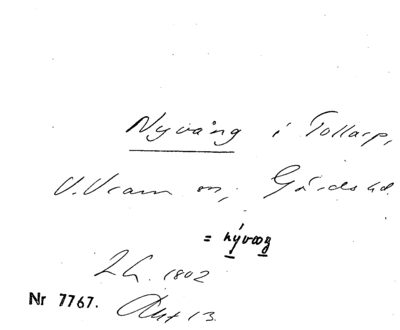 Nyvång i Tollarp,
V. Vram sn, Gärds hd.
= nývaŋ
LG. 1802
Nr 7767. Akt 13.